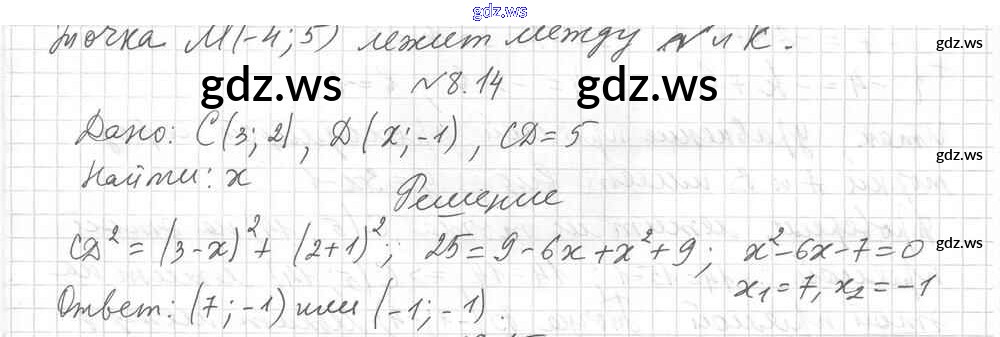 gdz.ws
точка M(-4;5) лежит между N и K.
gdz.ws
№8.14
gdz.ws gdz.ws
Дано: C(3;2), D(x;-1), CD=5
Найти: x
gdz.ws
Решение
CD² = (3-x)² + (2+1)²; 25=9-6x+x²+9; x²-6x-7=0
gdz.ws
x₁=7, x₂=-1
Ответ: (7;-1) или (-1;-1).
gdz.ws